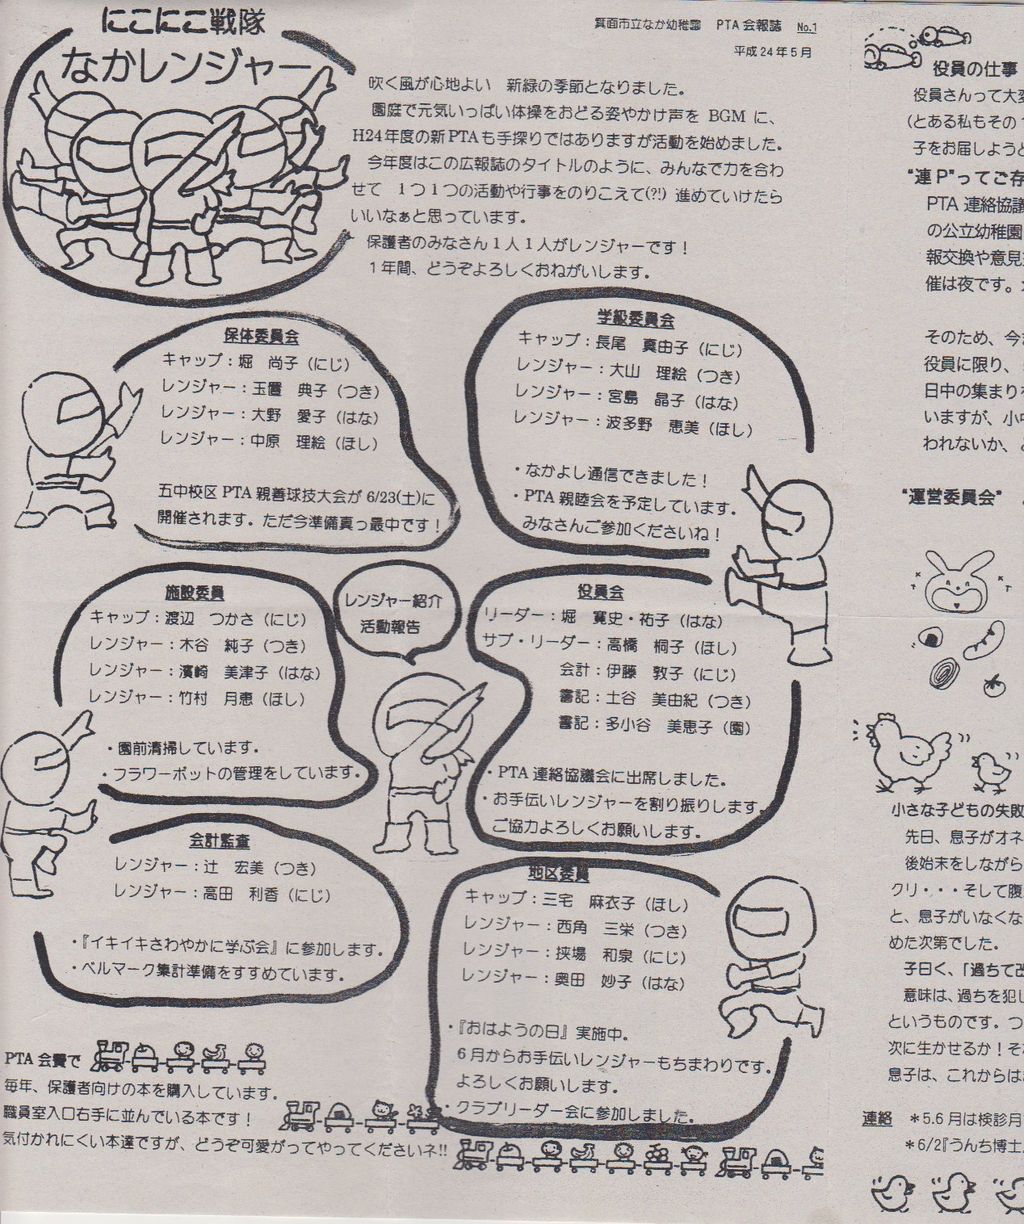 にこにこ戦隊
なかレンジャー
箕面市立なか幼稚園　PTA 会報誌　No.1
平成 24 年 5 月
吹く風が心地よい　新緑の季節となりました。
園庭で元気いっぱい体操をおどる姿やかけ声を BGM に、
H24 年度の新 PTA も手探りではありますが活動を始めました。
今年度はこの広報誌のタイトルのように、みんなで力を合わ
せて　1つ1つの活動や行事をのりこえて(?!) 進めていけたら
いいなぁと思っています。
保護者のみなさん1人1人がレンジャーです！
1年間、どうぞよろしくおねがいします。
保体委員会
キャップ：堀　尚子（にじ）
レンジャー：玉置　典子（つき）
レンジャー：大野　愛子（はな）
レンジャー：中原　理絵（ほし）
五中校区 PTA 親善球技大会が 6/23(土)に
開催されます。ただ今準備真っ最中です！
学級委員会
キャップ：長尾　真由子（にじ）
レンジャー：大山　理絵（つき）
レンジャー：宮島　晶子（はな）
レンジャー：波多野　恵美（ほし）
・なかよし通信できました！
・PTA 親睦会を予定しています。
みなさんご参加くださいね！
施設委員
キャップ：渡辺　つかさ（にじ）
レンジャー：木谷　純子（つき）
レンジャー：濱崎　美津子（はな）
レンジャー：竹村　月恵（ほし）
・園前清掃しています。
・フラワーポットの管理をしています。
レンジャー紹介
活動報告
役員会
リーダー：堀　寛史・祐子（はな）
サブ・リーダー：高橋　桐子（ほし）
会計：伊藤　敦子（にじ）
書記：土谷　美由紀（つき）
書記：多小谷　美恵子（園）
・PTA 連絡協議会に出席しました。
・お手伝いレンジャーを割り振りします。
ご協力よろしくお願いします。
会計監査
レンジャー：辻　宏美（つき）
レンジャー：高田　利香（にじ）
・『イキイキさわやかに学ぶ会』に参加します。
・ベルマーク集計準備をすすめています。
地区委員
キャップ：三宅　麻衣子（ほし）
レンジャー：西角　三栄（つき）
レンジャー：挟場　和泉（にじ）
レンジャー：奥田　妙子（はな）
・『おはようの日』実施中。
6月からお手伝いレンジャーもちまわりです。
よろしくお願いします。
・クラブリーダー会に参加しました。
PTA 会費で
毎年、保護者向けの本を購入しています。
職員室入口右手に並んでいる本です！
気付かれにくい本達ですが、どうぞ可愛がってやってくださいネ!!
役員の仕事
役員さんって大変
(とある私もその
子をお届しようと
“連 P”ってご存
PTA 連絡協議
の公立幼稚園
報交換や意見
催は夜です。
そのため、今
役員に限り、
日中の集まり
いますが、小
われないか、
“運営委員会”
小さな子どもの失敗
先日、息子がオネ
後始末をしながら
クリ・・・そして腹
と、息子がいなくな
めた次第でした。
子曰く、「過ちて改
意味は、過ちを犯し
というものです。つ
次に生かせるか！そ
息子は、これからは
連絡　＊5.6 月は検診月
＊6/2『うんち博士